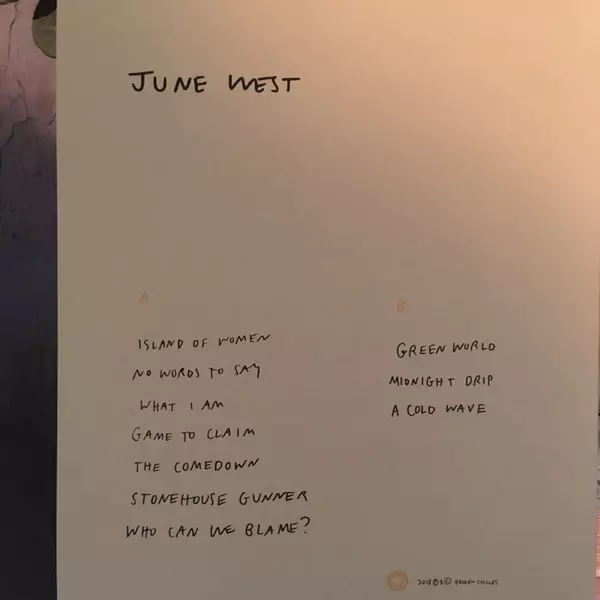 JUNE WEST
A
ISLAND OF WOMEN
NO WORDS TO SAY
WHAT I AM
GAME TO CLAIM
THE COMEDOWN
STONEHOUSE GUNNER
WHO CAN WE BLAME?
B
GREEN WORLD
MIDNIGHT DRIP
A COLD WAVE
2018